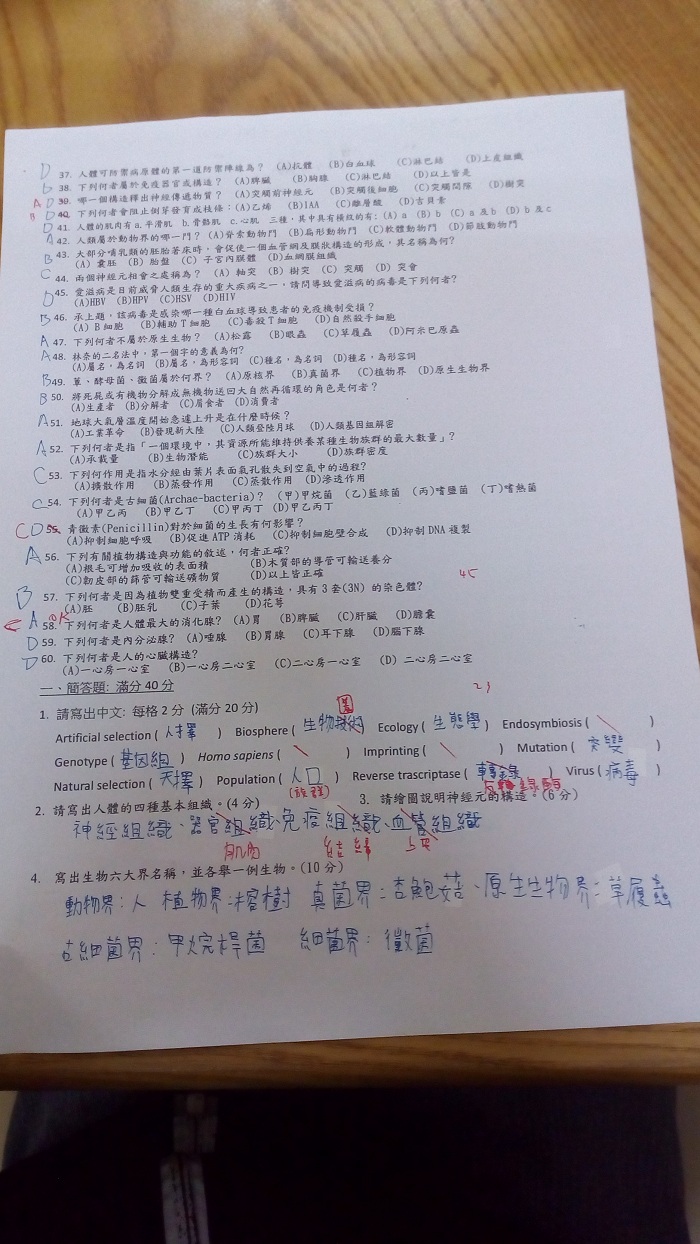 D 37. 人體可防禦病原體的第一道防禦陣線為？ (A)抗體 (B)白血球 (C)淋巴結 (D)上皮組織
b 38. 下列何者屬於免疫器官或構造？ (A)脾臟 (B)胸線 (C)淋巴結 (D)以上皆是
A D 39. 哪一個構造釋出神經傳遞物質？ (A)突觸前神經元 (B)突觸後細胞 (C)突觸間隙 (D)樹突
B D 40. 下列何者會阻止側芽發育成枝條：(A)乙烯 (B)IAA (C)離層酸 (D)吉貝素
D 41. 人體的肌肉有 a.平滑肌 b.骨骼肌 c.心肌 三種，其中具有橫紋的有：(A) a (B) b (C) a 及 b (D) b 及 c
A 42. 人類屬於動物界的哪一門？ (A)脊索動物門 (B)扁形動物門 (C)軟體動物門 (D)節肢動物門
B 43. 大部分哺乳類的胚胎著床時，會促使一個血管網及膜狀構造的形成，其名稱為何？
(A) 囊胚 (B) 胎盤 (C) 子宮內膜體 (D)血網膜組織
C 44. 兩個神經元相會之處稱為？ (A) 軸突 (B) 樹突 (C) 突觸 (D) 突會
D 45. 愛滋病是目前威脅人類生存的重大疾病之一，請問導致愛滋病的病毒是下列何者?
(A)HBV (B)HPV (C)HSV (D)HIV
B 46. 承上題，該病毒是感染哪一種白血球導致患者的免疫機制受損？
(A) B 細胞 (B)輔助 T 細胞 (C)毒殺 T 細胞 (D)自然殺手細胞
A 47. 下列何者不屬於原生生物？ (A)松露 (B)眼蟲 (C)草履蟲 (D)阿米巴原蟲
A 48. 林奈的二名法中，第一個字的意義為何?
(A)屬名，為名詞 (B)屬名，為形容詞 (C)種名，為名詞 (D)種名，為形容詞
B 49. 蕈、酵母菌、黴菌屬於何界？ (A)原核界 (B)真菌界 (C)植物界 (D)原生生物界
B 50. 將死屍或有機物分解成無機物送回大自然再循環的角色是何者？
(A)生產者 (B)分解者 (C)屑食者 (D)消費者
A 51. 地球大氣層溫度開始急遽上升是在什麼時候？
(A)工業革命 (B)發現新大陸 (C)人類登陸月球 (D)人類基因組解密
A 52. 下列何者是指「一個環境中，其資源所能維持供養某種生物族群的最大數量」？
(A)承載量 (B)生物潛能 (C)族群大小 (D)族群密度
C 53. 下列何作用是指水分經由葉片表面氣孔散失到空氣中的過程?
(A)擴散作用 (B)蒸發作用 (C)蒸散作用 (D)滲透作用
C 54. 下列何者是古細菌(Archae-bacteria)？ (甲)甲烷菌 (乙)藍綠菌 (丙)嗜鹽菌 (丁)嗜熱菌
(A)甲乙丙 (B)甲乙丁 (C)甲丙丁 (D)甲乙丙丁
C D 55. 青黴素(Penicillin)對於細菌的生長有何影響？
(A)抑制細胞呼吸 (B)促進 ATP 消耗 (C)抑制細胞壁合成 (D)抑制 DNA 複製
A 56. 下列有關植物構造與功能的敘述，何者正確?
(A)根毛可增加吸收的表面積 (B)木質部的導管可輸送養分
(C)韌皮部的篩管可輸送礦物質 (D)以上皆正確
45
B 57. 下列何者是因為植物雙重受精而產生的構造，具有 3 套(3N) 的染色體?
(A)胚 (B)胚乳 (C)子葉 (D)花萼
C A 58. 下列何者是人體最大的消化腺？ (A)胃 (B)脾臟 (C)肝臟 (D)膽囊
D 59. 下列何者是內分泌腺？ (A)唾腺 (B)胃腺 (C)耳下腺 (D)腦下腺
D 60. 下列何者是人的心臟構造?
(A)一心房一心室 (B)一心房二心室 (C)二心房一心室 (D) 二心房二心室
一、簡答題: 滿分 40 分
1. 請寫出中文: 每格 2 分 (滿分 20 分)
Artificial selection ( 人擇 ) Biosphere ( 生物 ) Ecology ( 生態學 ) Endosymbiosis ( )
Genotype ( 基因組 ) Homo sapiens ( ) Imprinting ( ) Mutation ( 突變 )
Natural selection ( 天擇 ) Population ( 人口 ) Reverse trascriptase ( 轉錄 ) Virus ( 病毒 )
(族群)
2. 請寫出人體的四種基本組織。(4 分) 3. 請繪圖說明神經元的構造。(6 分)
神經組織、器官組織、免疫組織、血管組織
肌肉 結締 上皮
4. 寫出生物六大界名稱，並各舉一例生物。(10 分)
動物界：人 植物界：榕樹 真菌界：杏鮑菇、原生生物界：草履蟲
古細菌界：甲烷桿菌 細菌界：黴菌